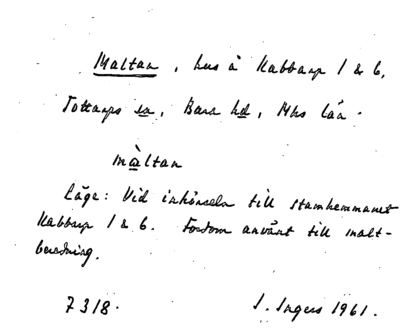 Maltan, hus å Kabbarp 1 & 6,
Tottarps sn, Bara hd, Mhs län.
màltan
Läge: Vid inkörseln till stamhemmanet
Kabbarp 1 & 6. Fordom använt till malt-
beredning.
7318. I. Ingers 1961.